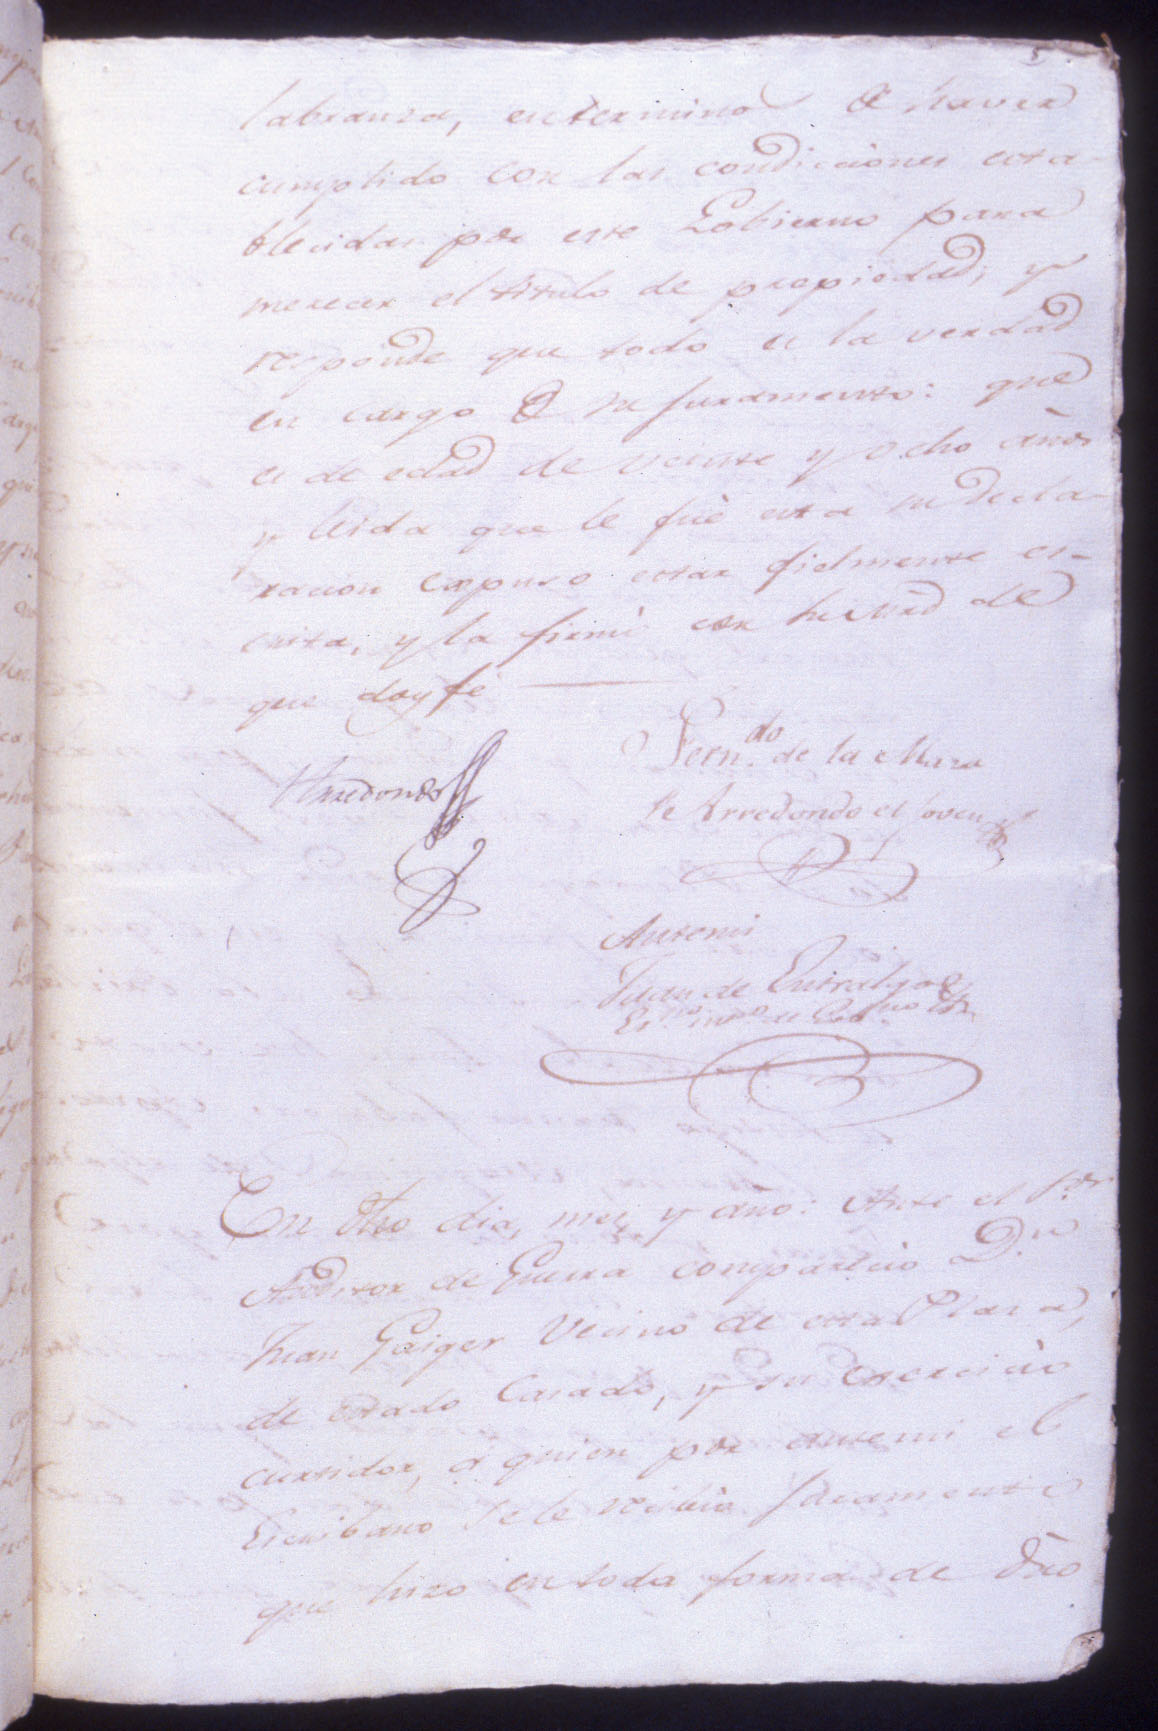 5
labranza, en termino de haver
cumplido con las condiciones esta-
blecidas por este Gobierno para
merecer el titulo de propiedad; y
responde que todo es la verdad
en cargo de su juramento: que
es de edad de veinte y ocho años
y leida que le fué esta su decla-
racion expuso estar fielmente es-
crita, y la firmó con su mrd de
que doy fé
Arredondo
Fern.do de la Maza
Arredondo el Joven
Antemi
Juan de Entralgo
Es.no
En dho dia, mes, y año: Ante el S.or
Auditor de Guerra comparecio D.n
Juan Gaiger Vecino de esta Plaza,
de estado Casado, y su exercicio
curtidor, á quien por antemi el
Escribano se le recibio juramento
que hizo en toda forma de dro